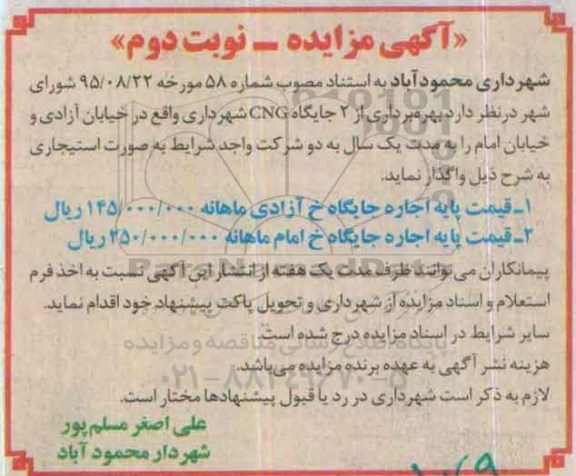 «آگهی مزایده - نوبت دوم»
شهرداری محمودآباد به استناد مصوب شماره ۵۸ مورخه ۹۵/۰۸/۲۲ شورای
شهر در نظر دارد بهره‌برداری از ۲ جایگاه CNG شهرداری واقع در خیابان آزادی و
خیابان امام را به مدت یک سال به دو شرکت واجد شرایط به صورت استیجاری
به شرح ذیل واگذار نماید.
۱ـ قیمت پایه اجاره جایگاه خ آزادی ماهانه ۱۴۵/۰۰۰/۰۰۰ ریال
۲ـ قیمت پایه اجاره جایگاه خ امام ماهانه ۲۵۰/۰۰۰/۰۰۰ ریال
پیمانکاران می‌توانند ظرف مدت یک هفته از انتشار این آگهی نسبت به اخذ فرم
استعلام و اسناد مزایده از شهرداری و تحویل پاکت پیشنهاد خود اقدام نماید.
سایر شرایط در اسناد مزایده درج شده است.
هزینه نشر آگهی به عهده برنده مزایده می‌باشد.
لازم به ذکر است شهرداری در رد یا قبول پیشنهادها مختار است.
علی اصغر مسلم پور
شهردار محمود آباد